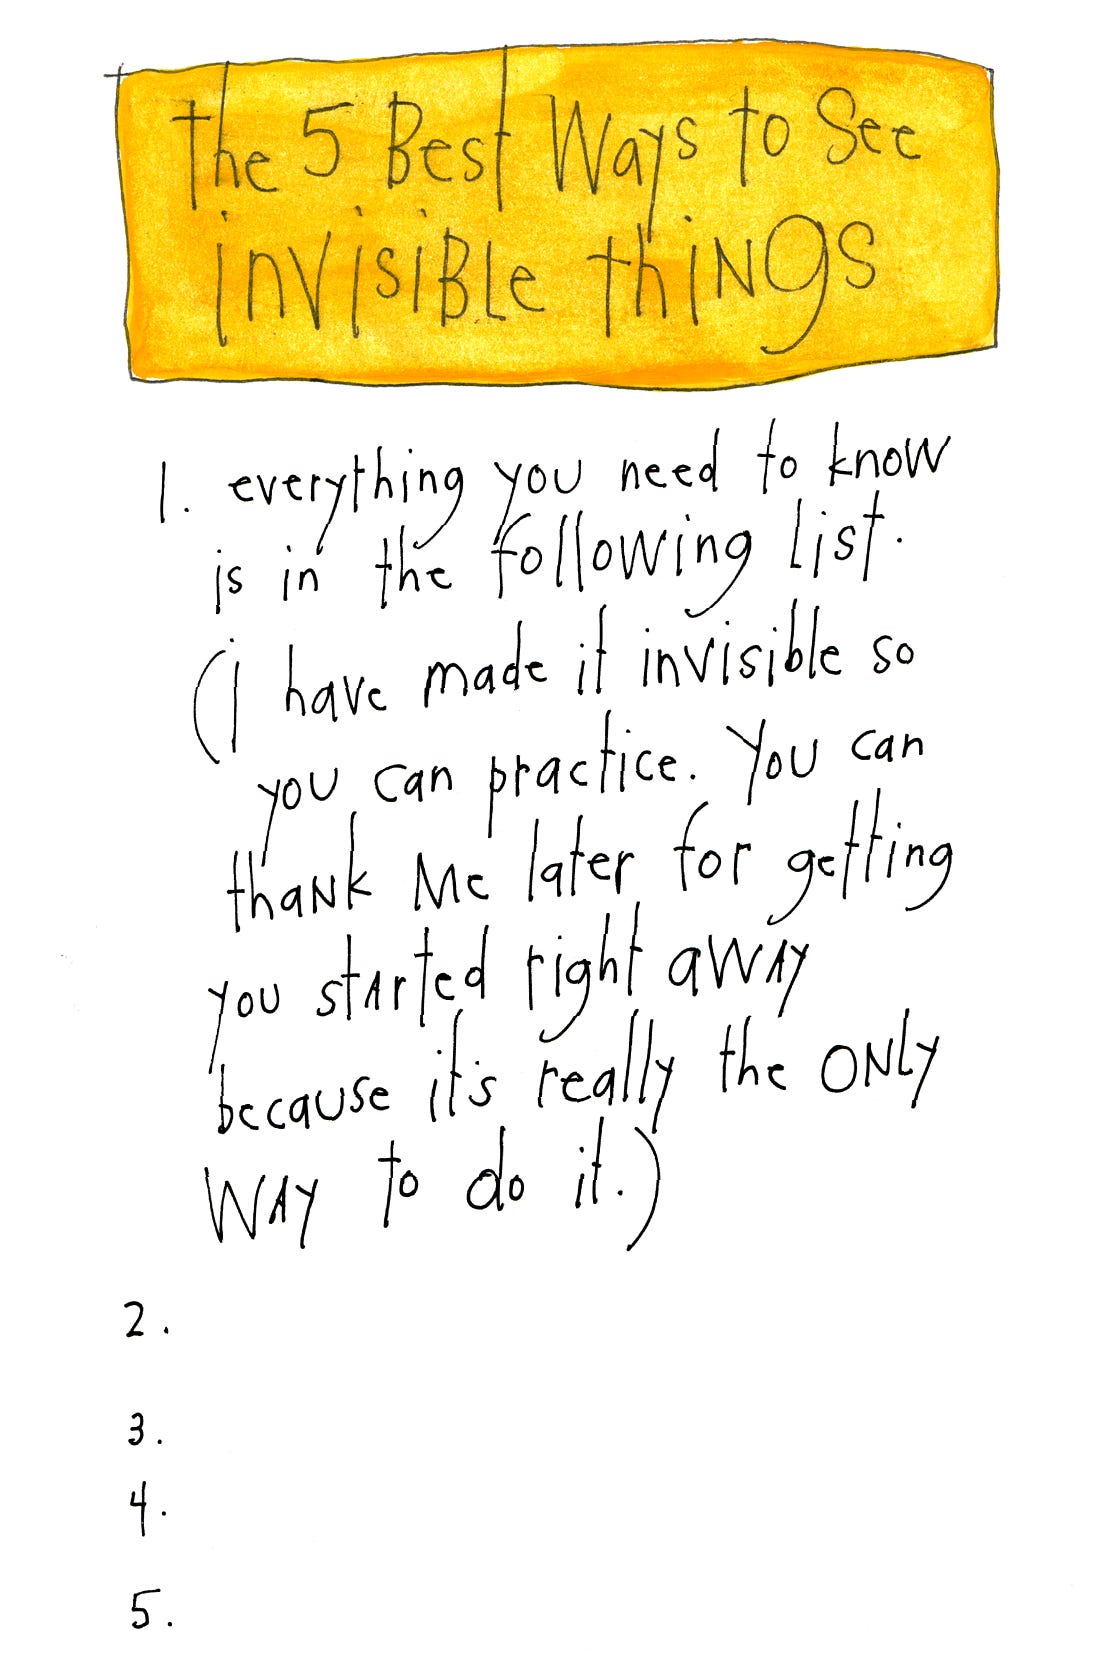 the 5 Best Ways to See
invisiBLe thiNgs
1. everything you need to know
is in the following list.
(i have made it invisible so
you can practice. You can
thaNk Me later for getting
you stArted right aWAY
because it's really the ONLY
WAY to do it.)
2.
3.
4.
5.